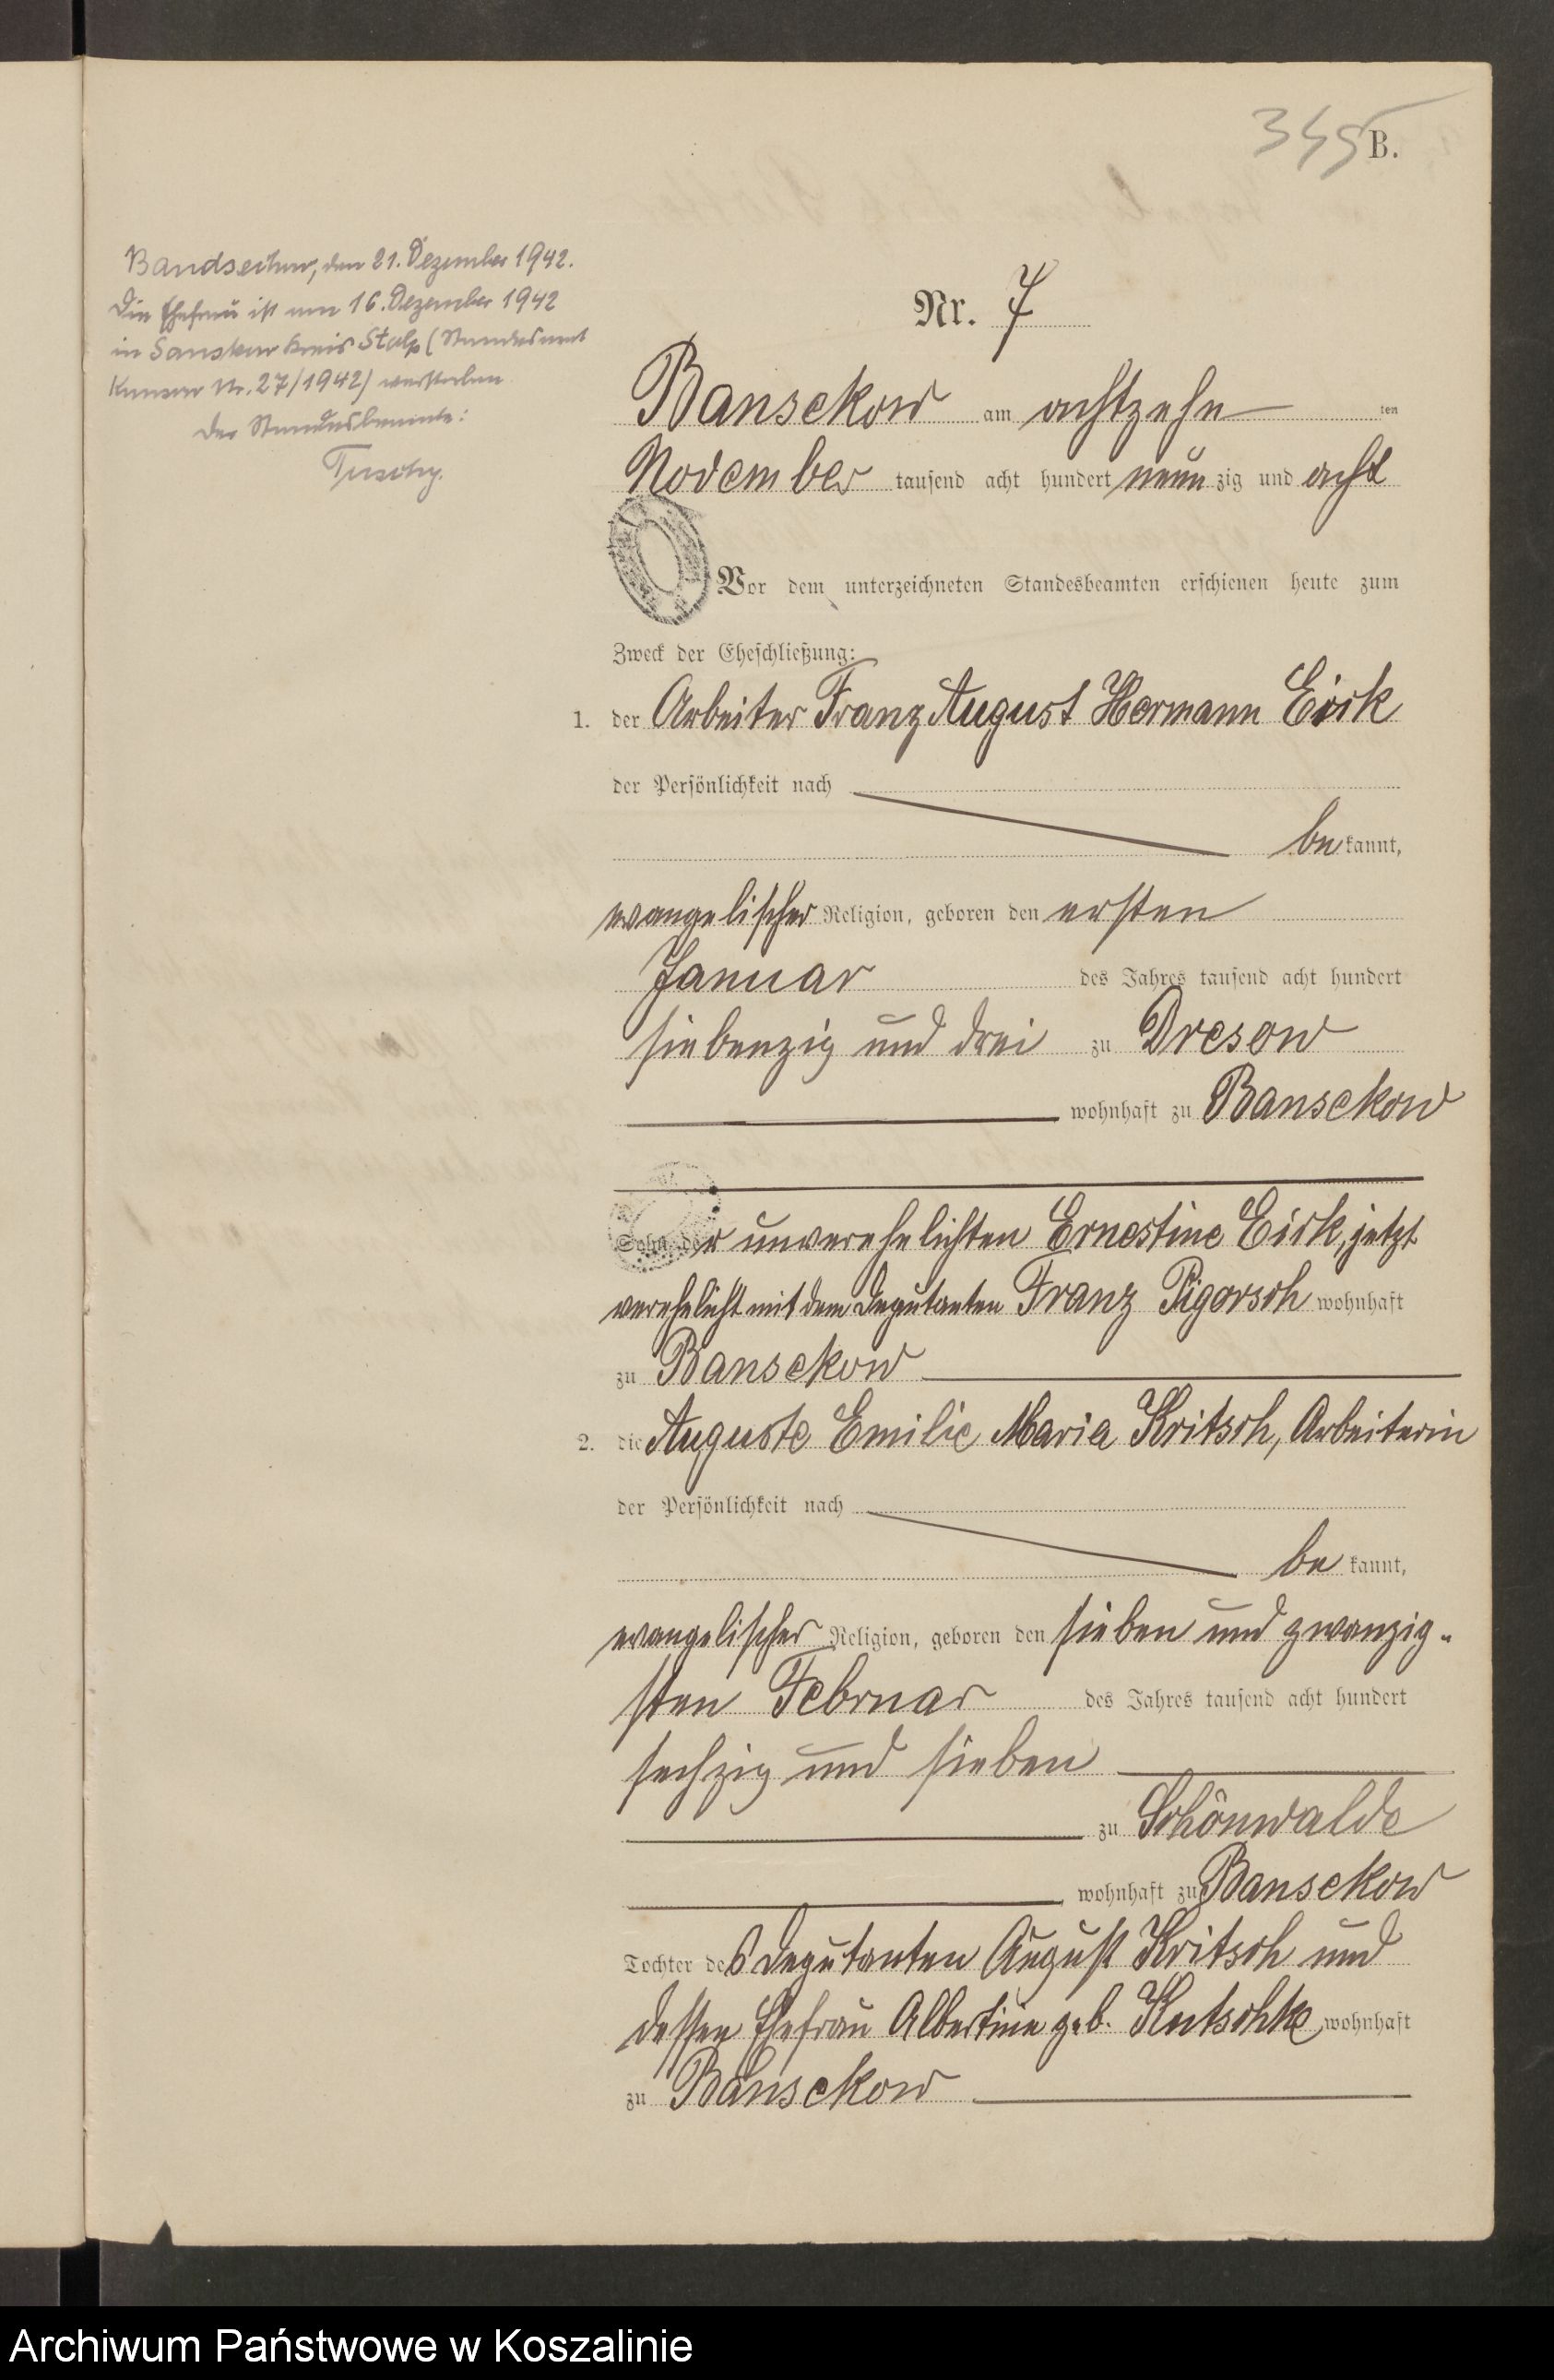 345 B.
Bandsechow, den 21. Dezember 1942.
Die Ehefrau ist am 16. Dezember 1942
in Sanskow Kreis Stolp (Standesamt
Kunsow Nr. 27/1942) verstorben.
Der Standesbeamte:
Nr. 7
Bansekow am achtzehn ten
November tausend acht hundert neun zig und acht
Vor dem unterzeichneten Standesbeamten erschienen heute zum
Zweck der Eheschließung:
1. der Arbeiter Franz August Hermann Eick
der Persönlichkeit nach
be kannt,
evangelischer Religion, geboren den ersten
Januar des Jahres tausend acht hundert
siebenzig und drei zu Dresow
wohnhaft zu Bansekow
Sohn der unverehelichten Ernestine Eick, jetzt
verehelicht mit dem Deputanten Franz Pigorsch wohnhaft
zu Bansekow
2. die Auguste Emilie Maria Kritsch, Arbeiterin
der Persönlichkeit nach
be kannt,
evangelischer Religion, geboren den sieben und zwanzig-
sten Februar des Jahres tausend acht hundert
sechzig und sieben
zu Schönwalde
wohnhaft zu Bansekow
Tochter des Deputanten August Kritsch und
dessen Ehefrau Albertine geb. Kutschke wohnhaft
zu Bansekow
Archiwum Państwowe w Koszalinie